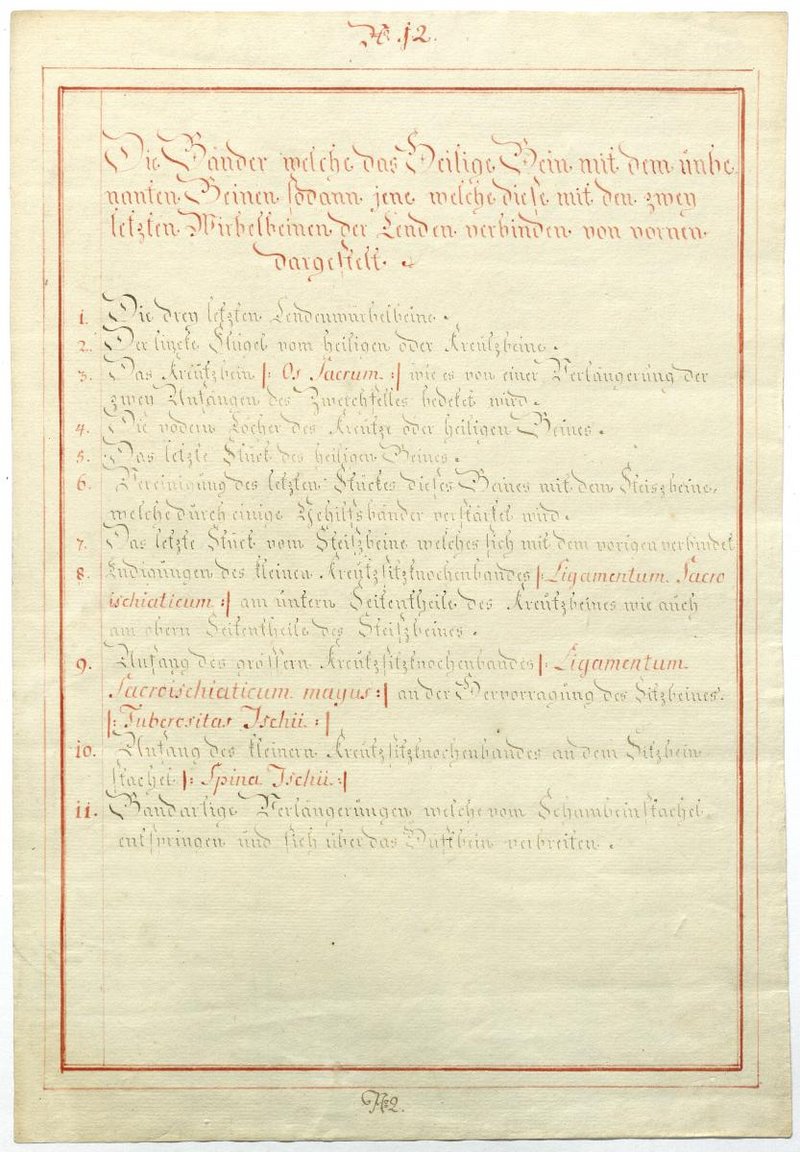 N. 12.
Die Bänder welche das Heilige Bein mit dem ünbe
nanten Beinen sodann jene welche diese mit den zwey
letzten Wirbelbeinen der Lenden verbinden von vornen
dargestelt.
1. Die drey letzten Lendenwürbelbeine.
2. Der lincke Flügel vom heiligen oder Kreützbeine.
3. Das Kreützbein |: Os Sacrum :| wie es von einer Verlängerüng der
zwey Anfängen des Zwerchfelles bedekt wird.
4. Die vodern Löcher des Kreütz oder heiligen Beines.
5. Das letzte Stück des heiligen Beines.
6. Vereinigüng des letzten Stückes dieses Beines mit dem Steiszbeine,
welche dürch einige Gehilfsbänder verstärket wird.
7. Das letzte Stück vom Steißbeine welches sich mit dem vorigen verbindet
8. Endigüngen des kleinen Kreützsitzknochenbandes |: Ligamentum Sacro
ischiaticum :| am üntern Seitentheile des Kreützbeines wie auch
am obern Seitentheile des Steißbeines.
9. Anfang des grössern Kreützsitzknochenbandes |: Ligamentum
Sacroischiaticum mayus :| an der Hervorragüng des Sitzbeines.
|: Tuberositas Ischii :|
10. Anfang des kleinern Kreützsitzknochenbandes an dem Sitzbein
stachel |: Spina Ischii :|
11. Bandartige Verlängerüngen welche vom Schambeinstachel
entspringen ünd sich über das Hüftbein verbreiten.
N. 2.